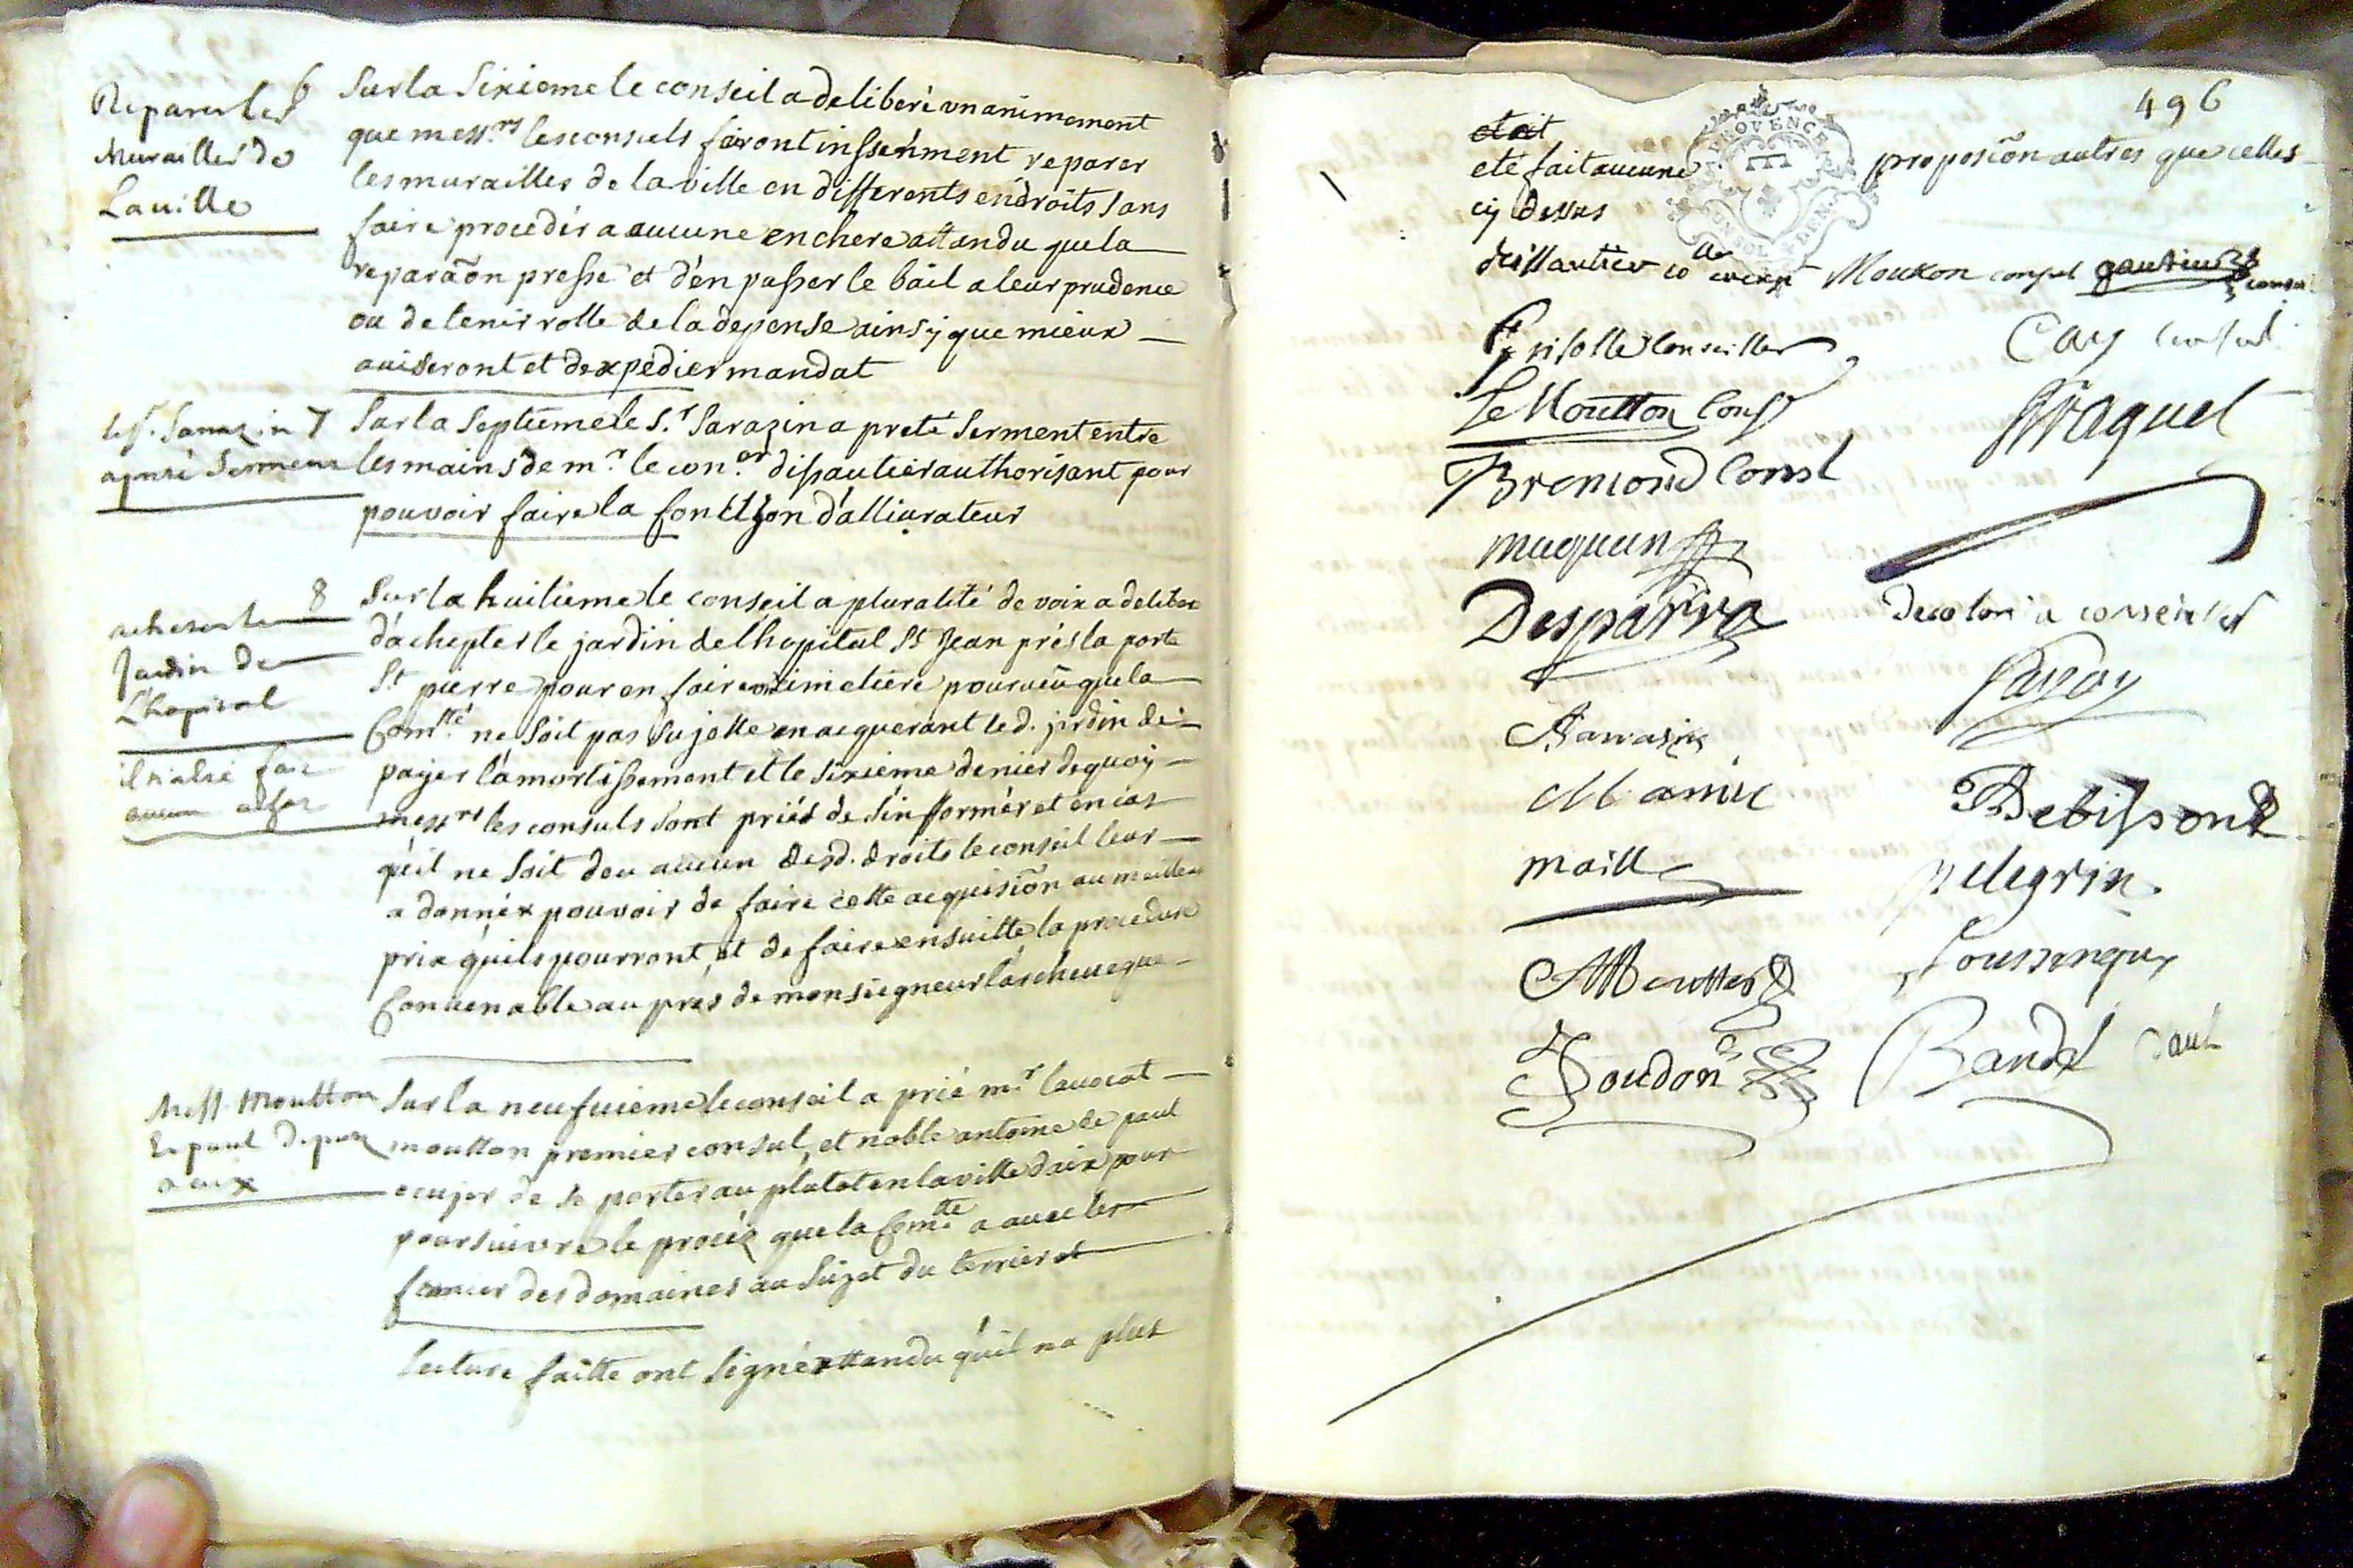 Reparer les
Murailles de
La ville
6 Sur la sixieme le conseil a deliberé unanimement
que mess.rs les consuls fairont inssenment reparer
les murailles de la ville en differents endroits sans
faire proceder a aucune enchere attandu que la
reparaõn presse et d'en passer le bail a leur prudence
ou de tenir rolle de la depense ainsy que mieux
aviseront et dexpedier mandat
le s.r Sarrazin
a preté Serment
7 Sur la septieme le S.r Sarazin a preté serment entre
les mains de m.r le con.er dissautier authorisant pour
pouvoir faire la fonction d'allivrateur
acheter le
Jardin de
L'hopital
il n'a été fait
aucun
8 Sur la huitieme le conseil a pluralité de voix a deliberé
d'achepter le jardin de l'hopital St Jean près la porte
St pierre pour en faire un simetière pourveu que la
Com.té ne soit pas sujette en acquerant led. jardin de
payer lámortissement et le sixiéme denier de quoy
mess.rs les consuls sont priés de s'informér et en cas
qu'il ne soit deu aucun desd. droits le conseil leur
a donné pouvoir de faire cette acquisiõn au meilleur
prix qu'ils pourront, et de faire ensuitte la procedure
Convenable au près de monseigneur l'archeveque
Mess. Moutton
& paul deputés
a aix
Sur la neufvieme le conseil a prié m.r l'avocat
moutton premier consul, et noble antoine de paul
ecuyer de se porter au plutot en la ville daix pour
poursuivre le procéz que la Com.té a avec les
fermier des domaines au sujet du terrier et
lecture faitte ont signé attandu qu'il na plus
496
etait
eté fait aucune proposiõn autres que celles
cy dessus
dissautier Moutton consul gautier consul
Grisolle Conseiller Cay consul
Le Moutton Cons.r Fraguet
Bremond Consl
muguun
Desparra conseiller
Sarrazin
M. amic Debissont
maille pelegrin
Toussenquy
Doudon Bandol Paul